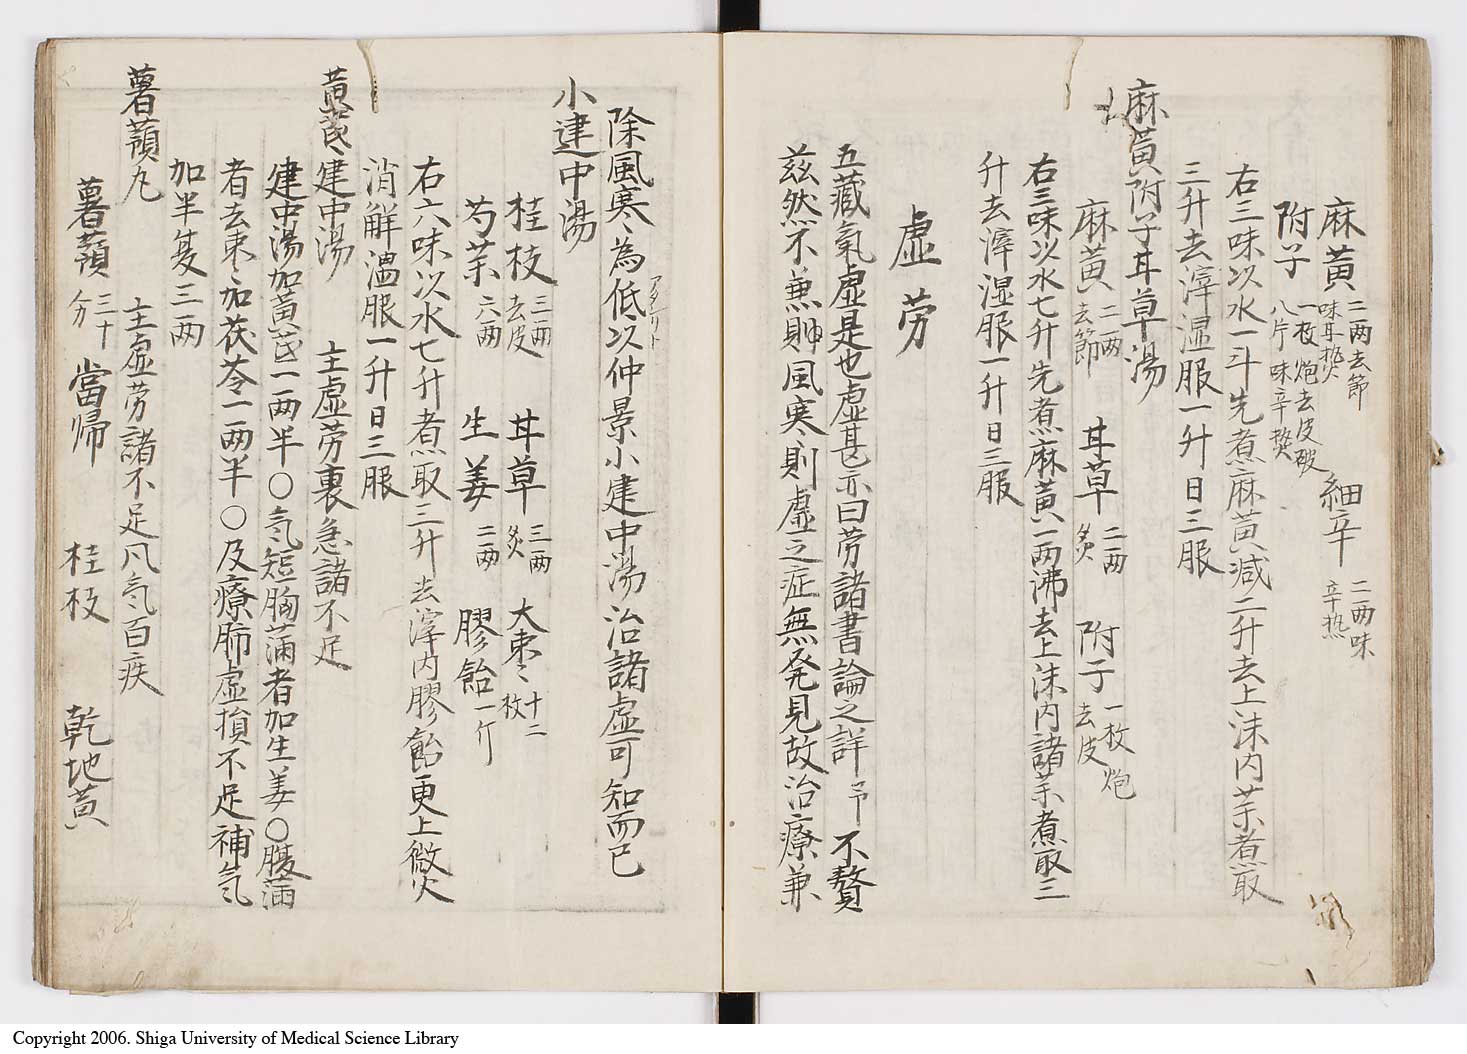 麻黃 二两去節 味耳熱 細辛 二两味 辛热
附子 一枚 炮去皮破 八片 味辛熱
右三味以水一斗先煮麻黄减二升去上沫内茶煮取
三升去滓湿服一升日三服
麻黃附子耳草湯
麻黃 二两 去節 耳草 二两 炙 附子 一枚炮 去皮
右三味以水七升先煮麻黄一两沸去上沫内諸茶煮取三
升去滓湿服一升日三服
虚劳
五藏氣虚是也虚甚亦曰劳諸書論之詳 不贅
兹然不兼 風寒則虚之症無発見故治療兼
除風寒〻為低以仲景小建中湯治諸虚可知而已
小建中湯
桂枝 三两 去皮 耳草 三两 炙 大棗〻 十二 枚
芍茶 六两 生姜 二两 膠飴 一斤
右六味以水七升煮取三升去滓内膠飴更上微火
消解溫服一升日三服
黄芪建中湯 主虚劳裏急諸不足
建中湯加黃芪一两半〇気短胸満者加生姜〇腹満
者去棗〻加茯苓一两半〇及療肺虚損不足補気
加半夏三两
薯蕷丸 主虚劳諸不足风気百疾
薯蕷 三十 分 當帰 桂枝 乾地黃
Copyright 2006. Shiga University of Medical Science Library